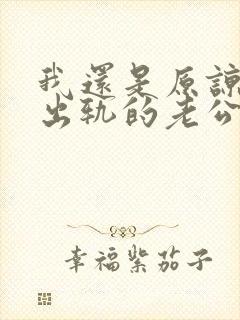 我還是原諒
出轨的老公
幸福紫茄子